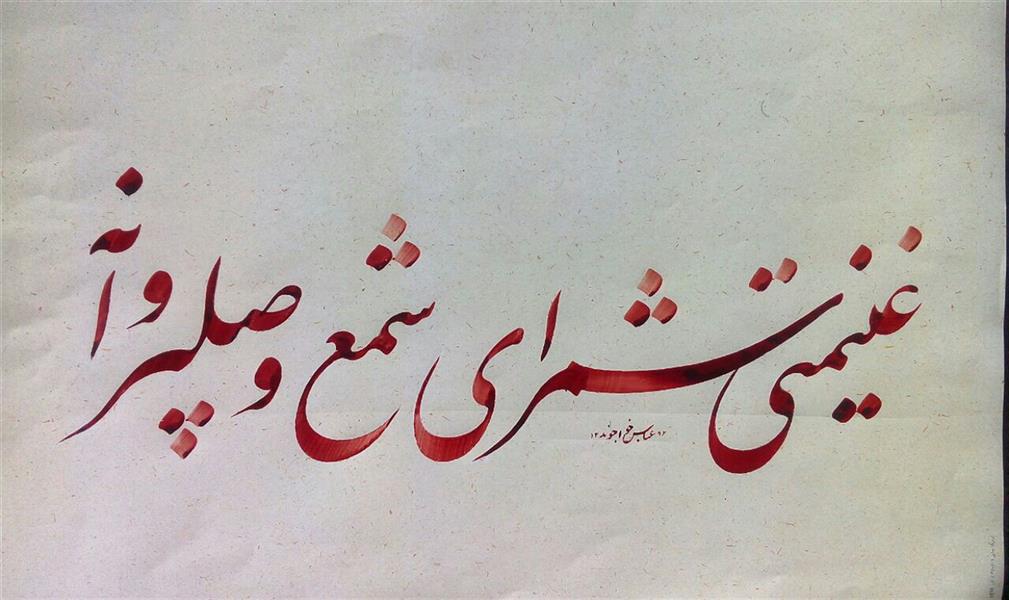 غنیمتی شمر ای شمع وصل پروانه
عباس خواجوند ۹۲